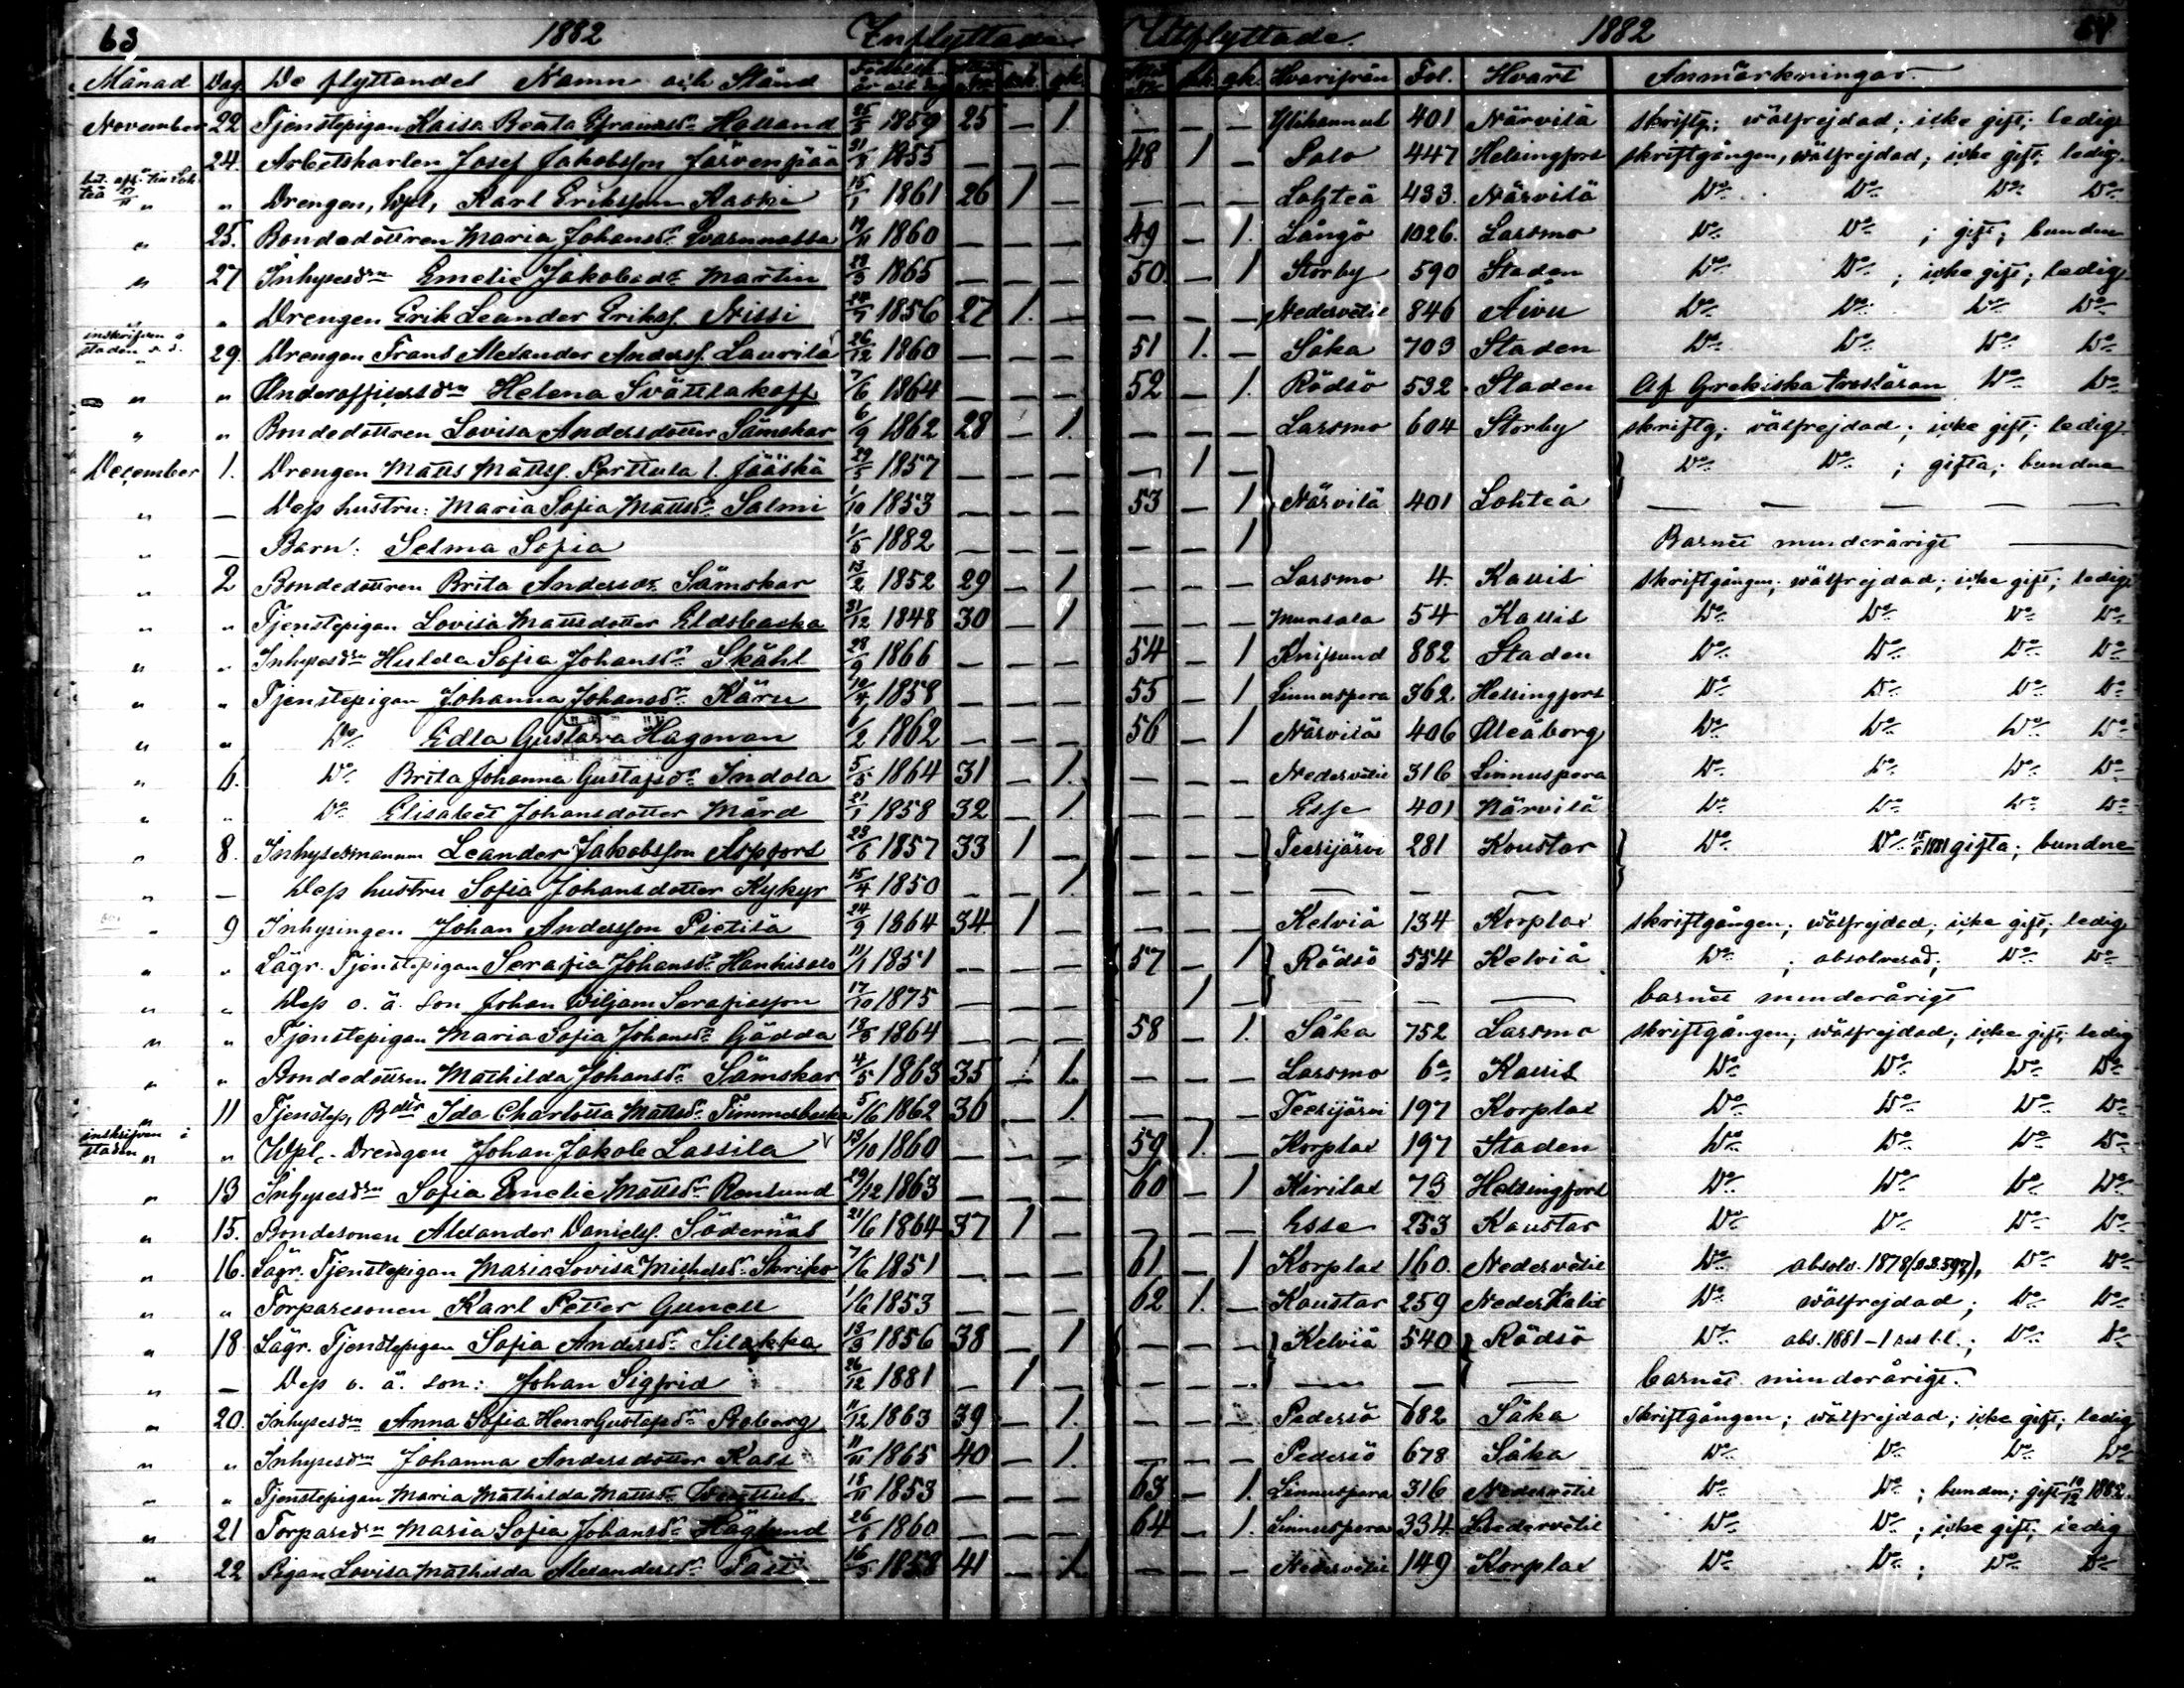 63 1882 Inflyttade Utflyttade. 1882 64
Månad Dag. De flyttandes Namn och Stånd mk. qk. mk. qk. Hvarifrån Fol. Hvart Anmärkningar.
November 22. Tjenstepigan Kaisa Beata Holland 25/5 1859 25 — 1. — — — 401 Närvilä skriftg; wälfrejdad; icke gift; ledig
24. Arbetskarlen Josef Jakobsson Järvenpää 31/3 1855 — — — 48 1 — Salo 447 Helsingfors skriftgången, wälfrejdad; icke gift; ledig.
" " Drengen, Wpl, Karl Eriksson Kaski 15/1 1861 26 1 — — — — Lohteå 433. Närvilä Do Do Do Do
" 25. Bondedottren Maria Johansdr 19/11 1860 — — — 49 — 1. Långö 1026. Larsmo Do Do ; gift; bunden
" 27 Inhysesdrn Emelie Jakobsdr Martin 23/3 1865 — — — 50. — 1 Storby 590 Staden Do Do ; icke gift; ledig
" " Drengen Erik Leander Erikss. Nissi 24/7 1856 27 1. — — — — Nedervetil 846 Åivu Do Do Do Do
inskrifven i staden s. d.
" 29. Drengen Frans Alexander Anderss. Laurila 26/12 1860 — — — 51 1. — Såka 703 Staden Do Do Do Do
" " Underofficersdrn Helena Svättlakoff 7/6 1864 — — — 52 — 1. Rödsö 532 Staden Af Grekiska trosläran Do Do
" " Bondedottren Lovisa Andersdotter Sämskar 6/9 1862 28 — 1. — — — Larsmo 604 Storby skriftg; välfrejdad; icke gift; ledig
December 1. Drengen Matts Mattss. Parttula l. Jääskä 29/5 1857 — — — — 1 — Do Do ; gifta; bundna
" — Dess hustru: Maria Sofia Mattsdr Salmi 1/10 1853 — — — 53 — 1 Närvilä 401 Lohteå — — — — —
" — Barn: Selma Sofia 1/5 1882 — — — — — 1 Barnet minderårigt —
" 2 Bondedottren Brita Andersdr Sämskar 13/2 1852 29 — 1 — — — Larsmo 4. Kallis skriftgången; wälfrejdad; icke gift; ledig
" " Tjenstepigan Lovisa Mattsdotter Eldsbacka 31/12 1848 30 — 1 — — — Munsala 54 Kallis Do Do Do Do
" " Inhysesdrn Hulda Sofia Johansdr Skåhl 28/9 1866 — — — 54 — 1 Knifsund 882 Staden Do Do Do Do
" " Tjenstepigan Johanna Johansdr Käru 10/4 1858 — — — 55 — 1 Linnuspera 362 Helsingfors Do Do Do Do
" " Do Edla Gustava Hagman 6/2 1862 — — — 56 — 1 Närvilä 406 Uleåborg Do Do Do Do
" 6. Do Brita Johanna Gustafsdr Indola 5/5 1864 31 — 1. — — — Nedervetil 316 Linnuspera Do Do Do Do
" " Do Elisabet Johansdotter Mård 21/1 1858 32 — 1. Esse 401 Närvilä Do Do Do Do
" 8. Inhysesmannen Leander Jakobsson Aspfors 23/6 1857 33 1 — — — Teerijärvi 281 Koustar Do Do 1881 gifta; bundne
" — Dess hustru Sofia Johansdotter Kykyr 15/4 1850 — — 1. — — — — — —
" 9 Inhysingen Johan Andersson Pietilä 24/9 1864 34 1 — — — — Kelviå 134 Korplax skriftgången; wälfrejdad; icke gift; ledig
" " Lägr. Tjenstepigan Serafia Johansdr Hanhisalo 11/1 1851 — — — 57 — 1 Rödsö 554 Kelviå Do ; absolverad; Do Do
" " Dess o. ä. son Johan Wiljam Serafiasson 17/10 1875 — — — 1 — — — — barnet minderårigt
" " Tjenstepigan Maria Sofia Johansdr Gädda 1864 — — — 58 — 1. Såka 752 Larsmo skriftgången; wälfrejdad; icke gift; ledig
" " Bondedottren Mathilda Johansdr Sämskar 4/5 1863 35 — 1. — — — Larsmo 6a Kallis Do Do Do Do
" 11 Tjenstep, Bdtr Ida Charlotta Mattsdr Timmerbacka 5/6 1862 36 — 1. — — — Teerijärvi 197 Korplax Do Do Do Do
inskrifven i staden
" " Wpl. Drengen Johan Jakob Lassila 19/10 1860 — — — 59 1. — Korplax 197 Staden Do Do Do Do
" 13 Inhysesdrn Sofia Emelie Mattsdr Renlund 29/12 1863 — — — 60 — 1 Kirilax 73 Helsingfors Do Do Do Do
" 15. Bondesonen Alexander Danielss. Södernäs 21/6 1864 37 1 — — — — Esse 253 Kaustar Do Do Do Do
" 16. Lägr. Tjenstepigan Maria Lovisa Mickelsdr Skriko 7/6 1851 — — — 61 — 1 Korplax 160. Nedervetil Do absolv. 1878 (S.B. 597), Do Do
" " Torparesonen Karl Petter Gunell 1/6 1853 — — — 62 1. — Kaustar 259 Do wälfrejdad; Do Do
" 18 Lägr. Tjenstepigan Sofia Andersdr Silakka 13/3 1856 38 — 1 — — — Kelviå 540 Rödsö Do abs. 1881 Do Do
" — Dess o. ä. son: Johan Sigfrid 26/12 1881 — 1 — — — — — — — barnet minderårigt.
" 20. Inhysesdrn Anna Sofia Henr Gustafsdr Roborg 11/12 1863 39 — 1. — — — Pedersö 682 Såka Skriftgången; wälfrejdad; icke gift; ledig
" " Inhysesdrn Johanna Andersdotter Kass 11/11 1865 40 — 1. — — — Pedersö 678 Såka Do Do Do Do
" " Tjenstepigan Maria Mathilda Mattsdr 18/11 1853 — — — 63 — 1. Linnuspera 316 Nedervetil Do Do ; bunden; gift 10/12 1882.
" 21 Torparedrn Maria Sofia Johansdr Häglund 26/6 1860 — — — 64 — 1. Linnuspera 334 Nedervetil Do Do ; icke gift; ledig
" 22 Pigan Lovisa Mathilda Alexandersdr Fast 16/5 1858 41 — 1. — — — Nedervetil 149 Korplax Do Do ; Do Do